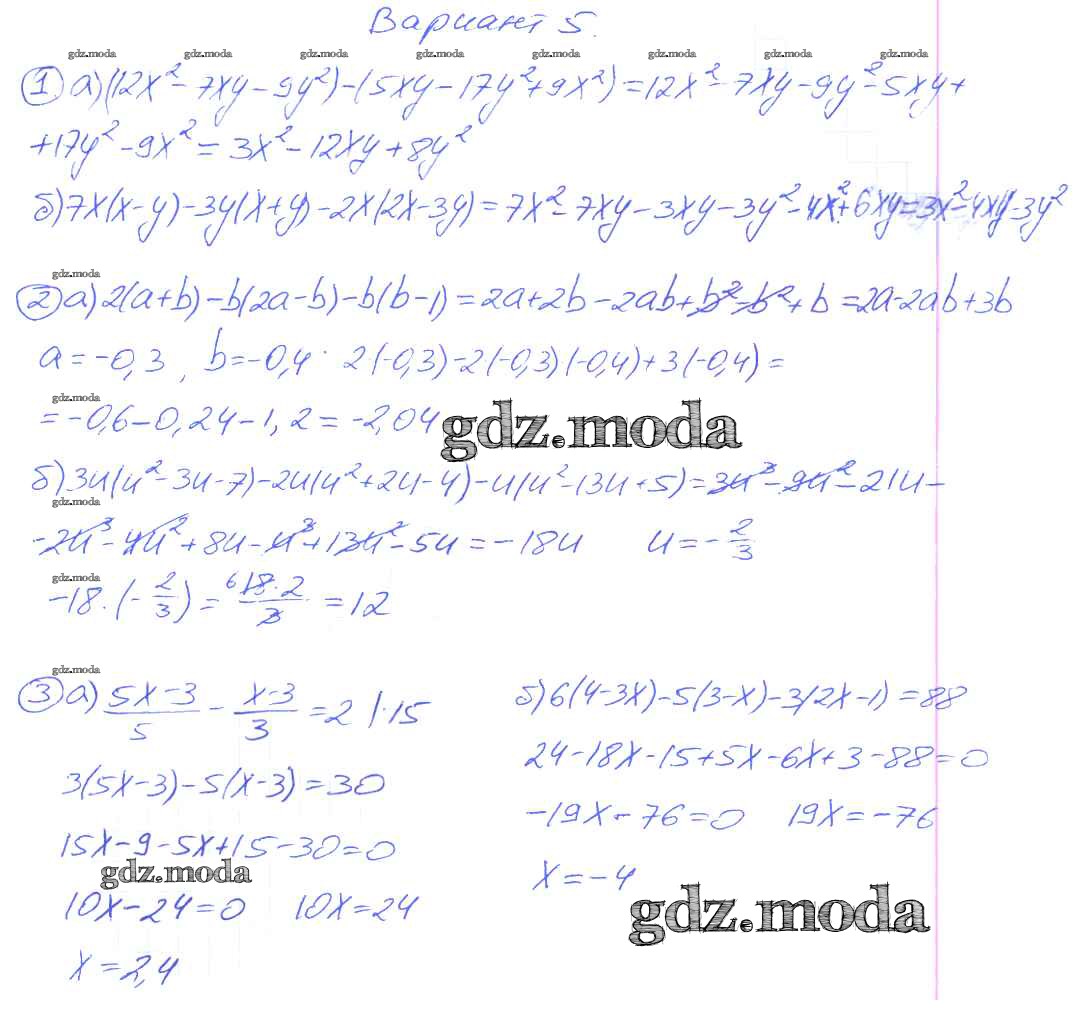 Вариант 5.
gdz.moda gdz.moda gdz.moda gdz.moda gdz.moda gdz.moda gdz.moda gdz.moda
① а) (12x² - 7xy - 9y²) - (5xy - 17y² + 9x²) = 12x² - 7xy - 9y² - 5xy +
+ 17y² - 9x² = 3x² - 12xy + 8y²
б) 7x(x-y) - 3y(x+y) - 2x(2x-3y) = 7x² - 7xy - 3xy - 3y² - 4x² + 6xy = 3x² - 4xy - 3y²
gdz.moda
② а) 2(a+b) - b(2a-b) - b(b-1) = 2a + 2b - 2ab + b² - b² + b = 2a - 2ab + 3b
a = -0,3, b = -0,4. 2(-0,3) - 2(-0,3)(-0,4) + 3(-0,4) =
gdz.moda
= -0,6 - 0,24 - 1,2 = -2,04
gdz.moda
б) 3u(u² - 3u - 7) - 2u(u² + 2u - 4) - u(u² - 13u + 5) = 3u³ - 9u² - 21u -
gdz.moda
- 2u³ - 4u² + 8u - u³ + 13u² - 5u = -18u u = -2/3
gdz.moda
-18 · (-2/3) = 6 18·2/3 = 12
gdz.moda
③ а) (5x-3)/5 - (x-3)/3 = 2 |·15
3(5x-3) - 5(x-3) = 30
15x - 9 - 5x + 15 - 30 = 0
gdz.moda
10x - 24 = 0 10x = 24
x = 2,4
б) 6(4-3x) - 5(3-x) - 3(2x-1) = 88
24 - 18x - 15 + 5x - 6x + 3 - 88 = 0
-19x - 76 = 0 19x = -76
x = -4
gdz.moda